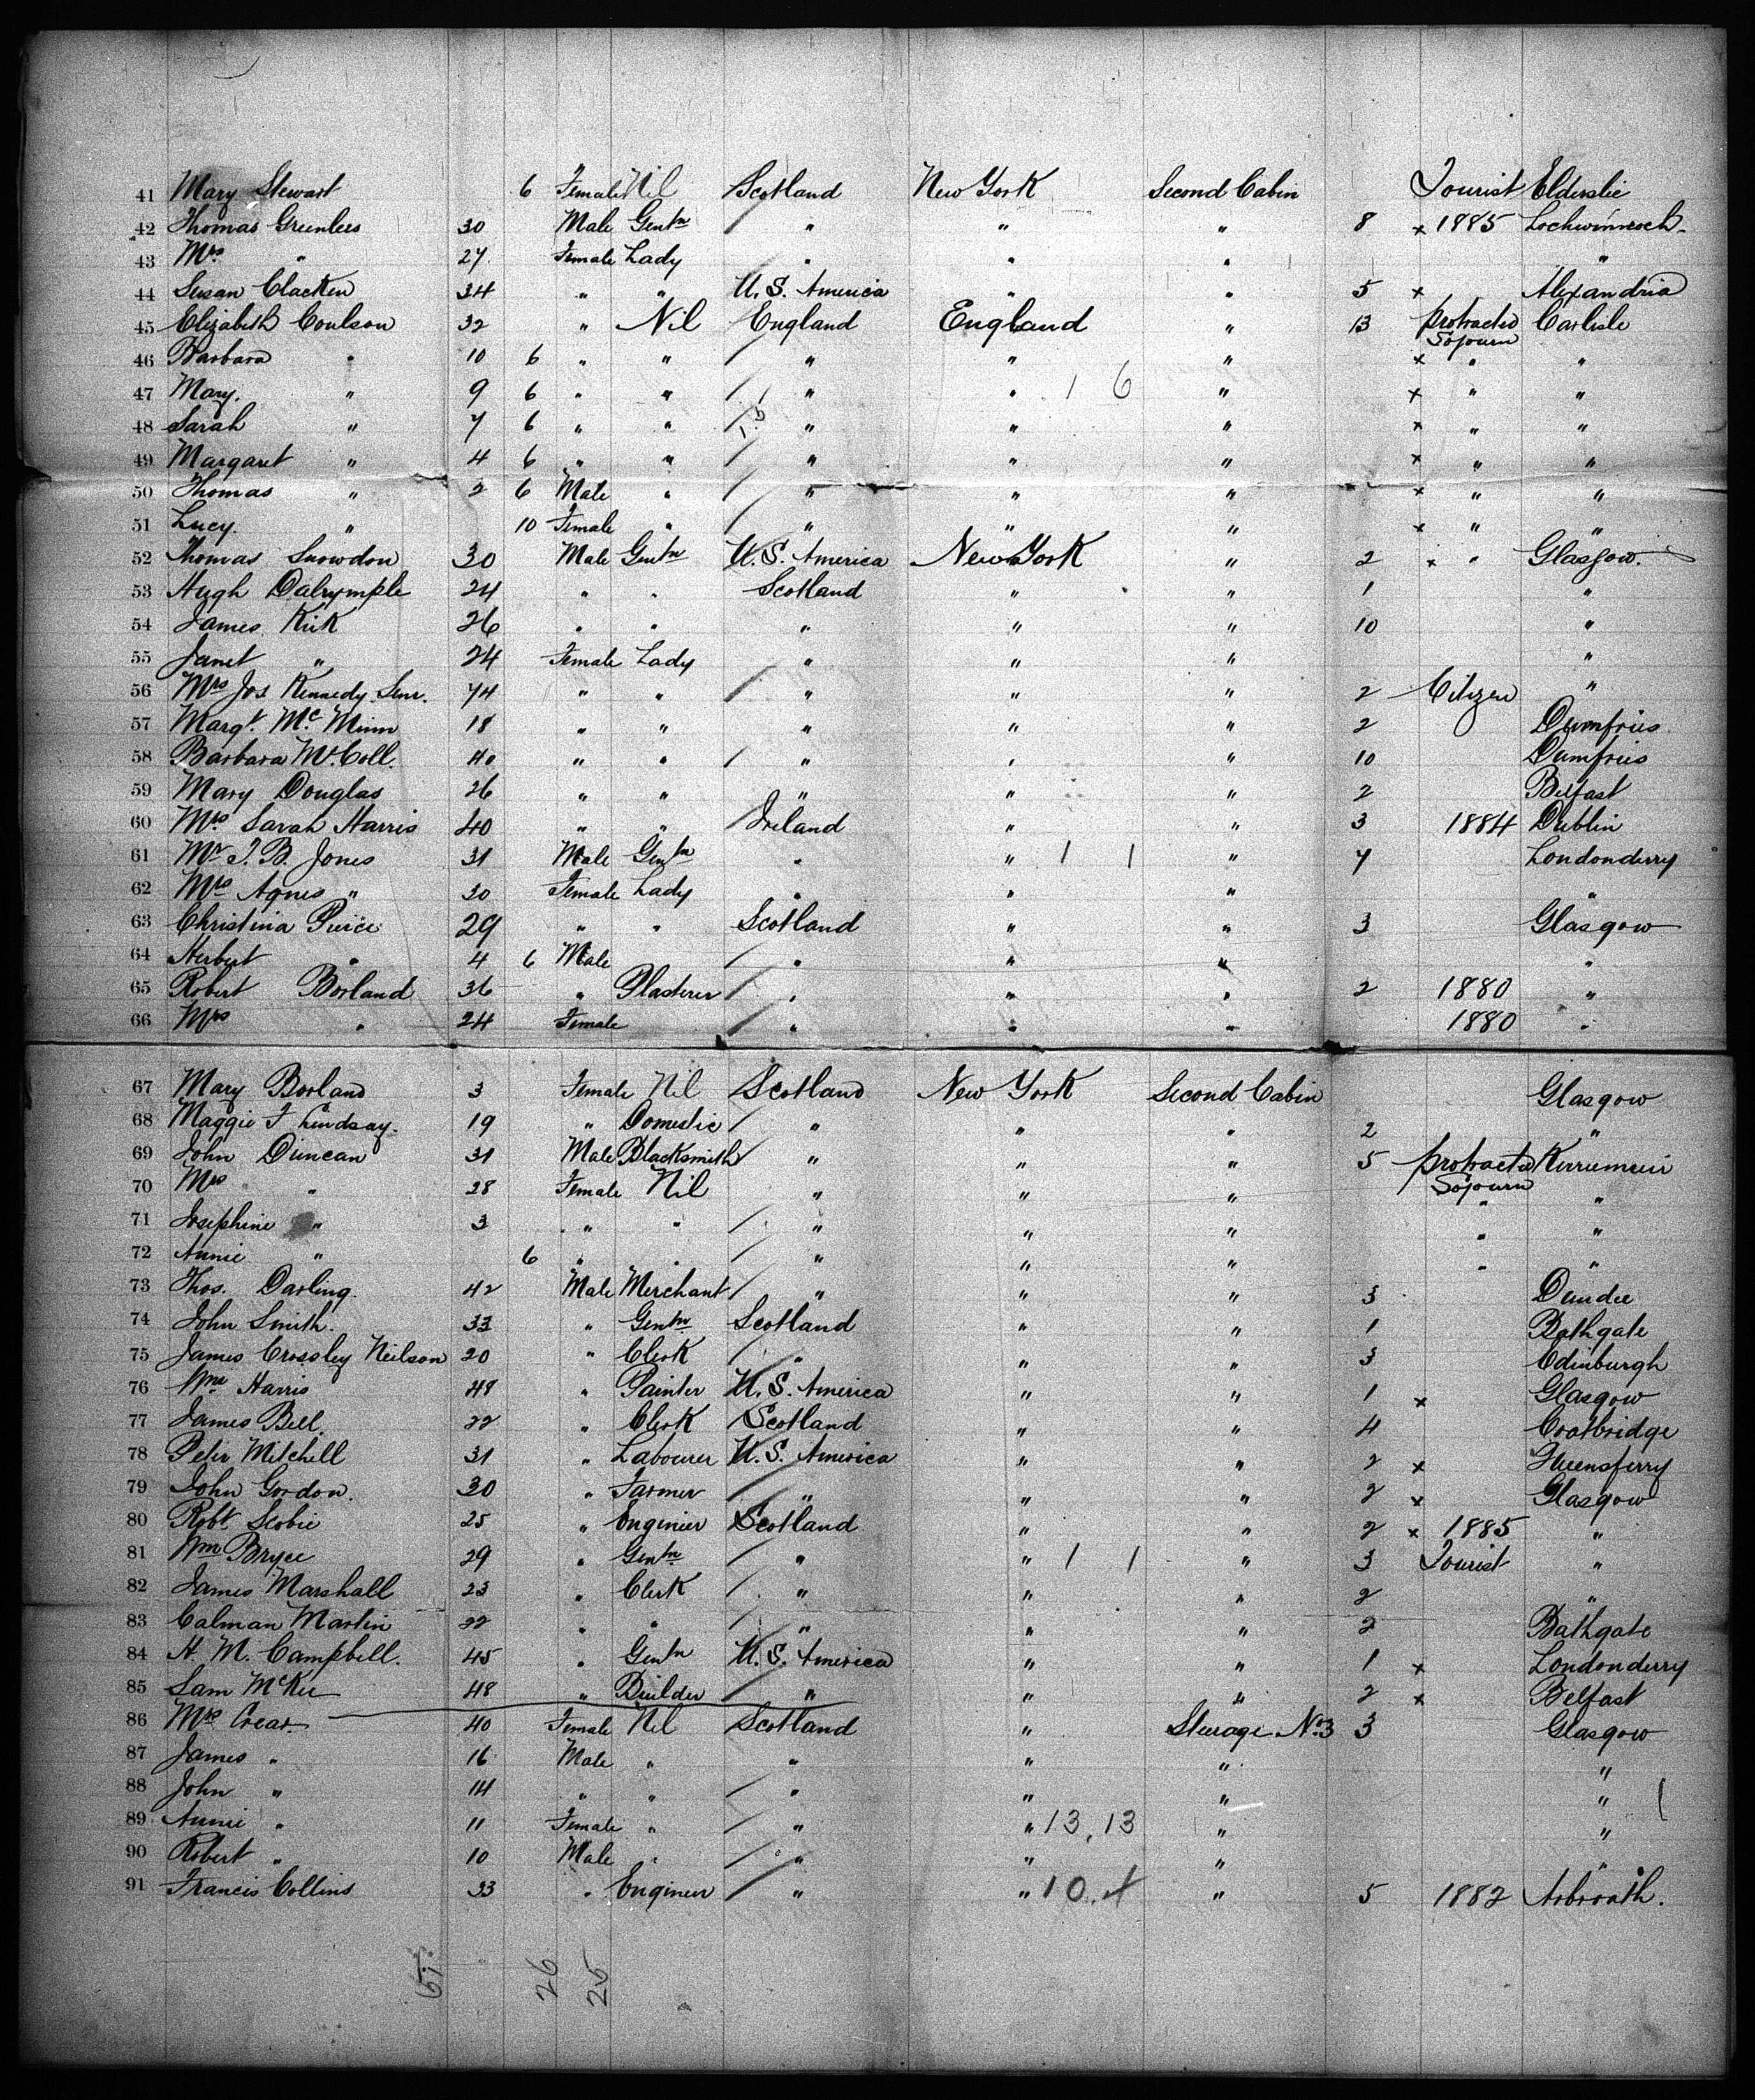 41 Mary Stewart 6 Female Nil Scotland New York Second Cabin Tourist Elderslie
42 Thomas Greenlees 30 Male Gentn " " " 8 x 1885 Lochwinnoch
43 Mrs " 27 Female Lady " " " "
44 Susan Clacken 34 " " U.S. America " " 5 x Alexandria
45 Elizabeth Coulson 32 " Nil England England " 13 protracted Sojourn Carlisle
46 Barbara " 10 6 " " " " " x " "
47 Mary. " 9 6 " " " " 1 6 " x " "
48 Sarah " 7 6 " " " " " x " "
49 Margaret " 4 6 " " " " " x " "
50 Thomas " 2 6 Male " " " " x " "
51 Lucy. " 10 Female " " " " x " "
52 Thomas Snowdon 30 Male Gentn U.S. America New York " 2 x " Glasgow.
53 Hugh Dalrymple 24 " " Scotland " " 1 "
54 James Kirk 26 " " " " " 10 "
55 Janet " 24 Female Lady " " " "
56 Mrs Jos. Kennedy Senr. 74 " " " " " 2 Citizen "
57 Margt. Mc Minn 18 " " " " " 2 Dumfries
58 Barbara McColl. 40 " " " " " 10 Dumfries
59 Mary Douglas 26 " " " " " 2 Belfast
60 Mrs. Sarah Harris 40 " " Ireland " " 3 1884 Dublin
61 Mr J. B. Jones 31 Male Gentn " " 1 1 " 7 Londonderry
62 Mrs Agnes " 30 Female Lady " " " "
63 Christina Peirce 29 " " Scotland " " 3 Glasgow
64 Herbert " 4 6 Male " " " "
65 Robert Borland 36 " Plasterer " " " 2 1880 "
66 Mrs " 24 Female " " " 1880 "
67 Mary Borland 3 Female Nil Scotland New York Second Cabin Glasgow
68 Maggie F Lindsay. 19 " Domestic " " " 2 "
69 John Duncan 31 Male Blacksmith " " " 5 protracted Sojourn Kirriemuir
70 Mrs " 28 Female Nil " " " " "
71 Josephine " 3 " " " " " " "
72 Annie " 6 " " " " " " "
73 Thos. Darling. 42 Male Merchant " " " 3 Dundee
74 John Smith. 33 " Gentn Scotland " " 1 Bathgate
75 James Crossley Neilson 20 " Clerk " " " 3 Edinburgh
76 Wm Harris 48 " Painter U.S. America " " 1 x Glasgow
77 James Bell. 22 " Clerk Scotland " " 4 Coatbridge
78 Peter Mitchell 31 " Labourer U.S. America " " 2 x Queensferry
79 John Gordon. 30 " Farmer " " " 2 x Glasgow
80 Robt Scobie 25 " Engineer Scotland " " 2 x 1885 "
81 Wm Bryce 29 " Gentn " " 1 1 " 3 Tourist "
82 James Marshall 23 " Clerk " " " 2 "
83 Calman Martin 22 " " " " " 2 Bathgate
84 H. M. Campbell. 45 " Gentn U.S. America " " 1 x Londonderry
85 Sam McKee 48 " Builder " " " 2 x Belfast
86 Mrs Crear 40 Female Nil Scotland " Steerage No. 3 3 Glasgow
87 James " 16 Male " " " " "
88 John " 14 " " " " " "
89 Annie " 11 Female " " " 13, 13 " "
90 Robert " 10 Male " " " " "
91 Francis Collins 33 " Engineer " " 10. 4 " 5 1882 Arbroath.
51.
26
25